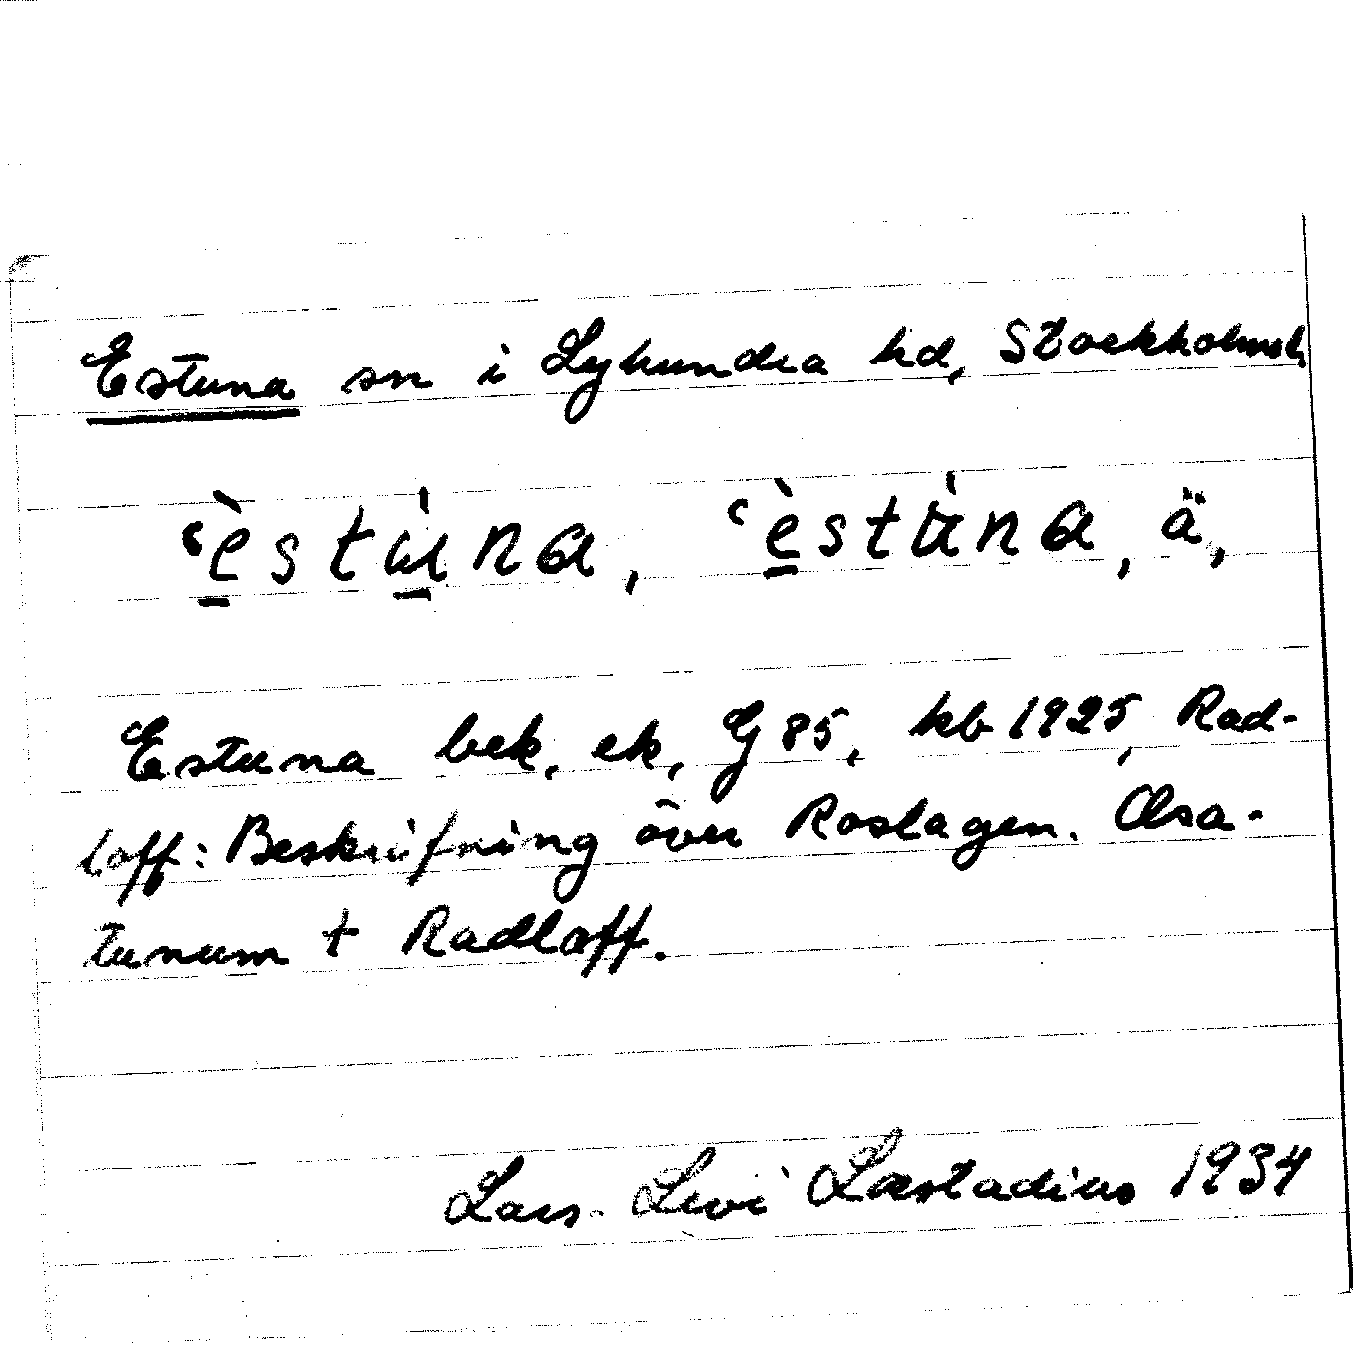 Estuna sn i Lyhundra hd, Stockholms l.
ʽè̱stù̱na, ʽè̱stùna, ä,
Estuna bek, ek, G 85, kb 1925, Rad-
loff: Beskrifning över Roslagen. Æsa-
tunum + Radloff.
Lars-Levi Læstadius 1934